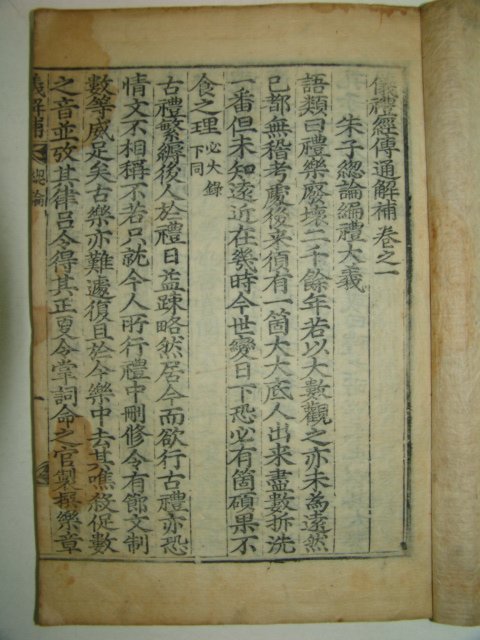 儀禮經傳通解補 卷之一
朱子總論編禮大義
語類曰禮樂廢壞二千餘年若以大數觀之亦未為遠然
已都無稽考處後來須有一箇大大底人出來盡數拆洗
一番但未知遠近在幾時今世變日下恐必有箇碩果不
食之理 必大錄下同
古禮繁縟後人於禮日益疎略然居今而欲行古禮亦恐
情文不相稱不若只就今人所行禮中刪修令有節文制
數等威足矣古樂亦難遽復且於今樂中去其噍殺促數
之音並攷其律呂令得其正更令掌詞命之官製撰樂章
儀解補 總論